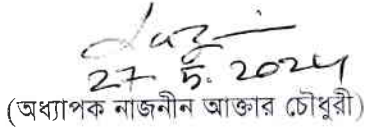 27. 5. 2024
(অধ্যাপক নাজনীন আক্তার চৌধুরী)